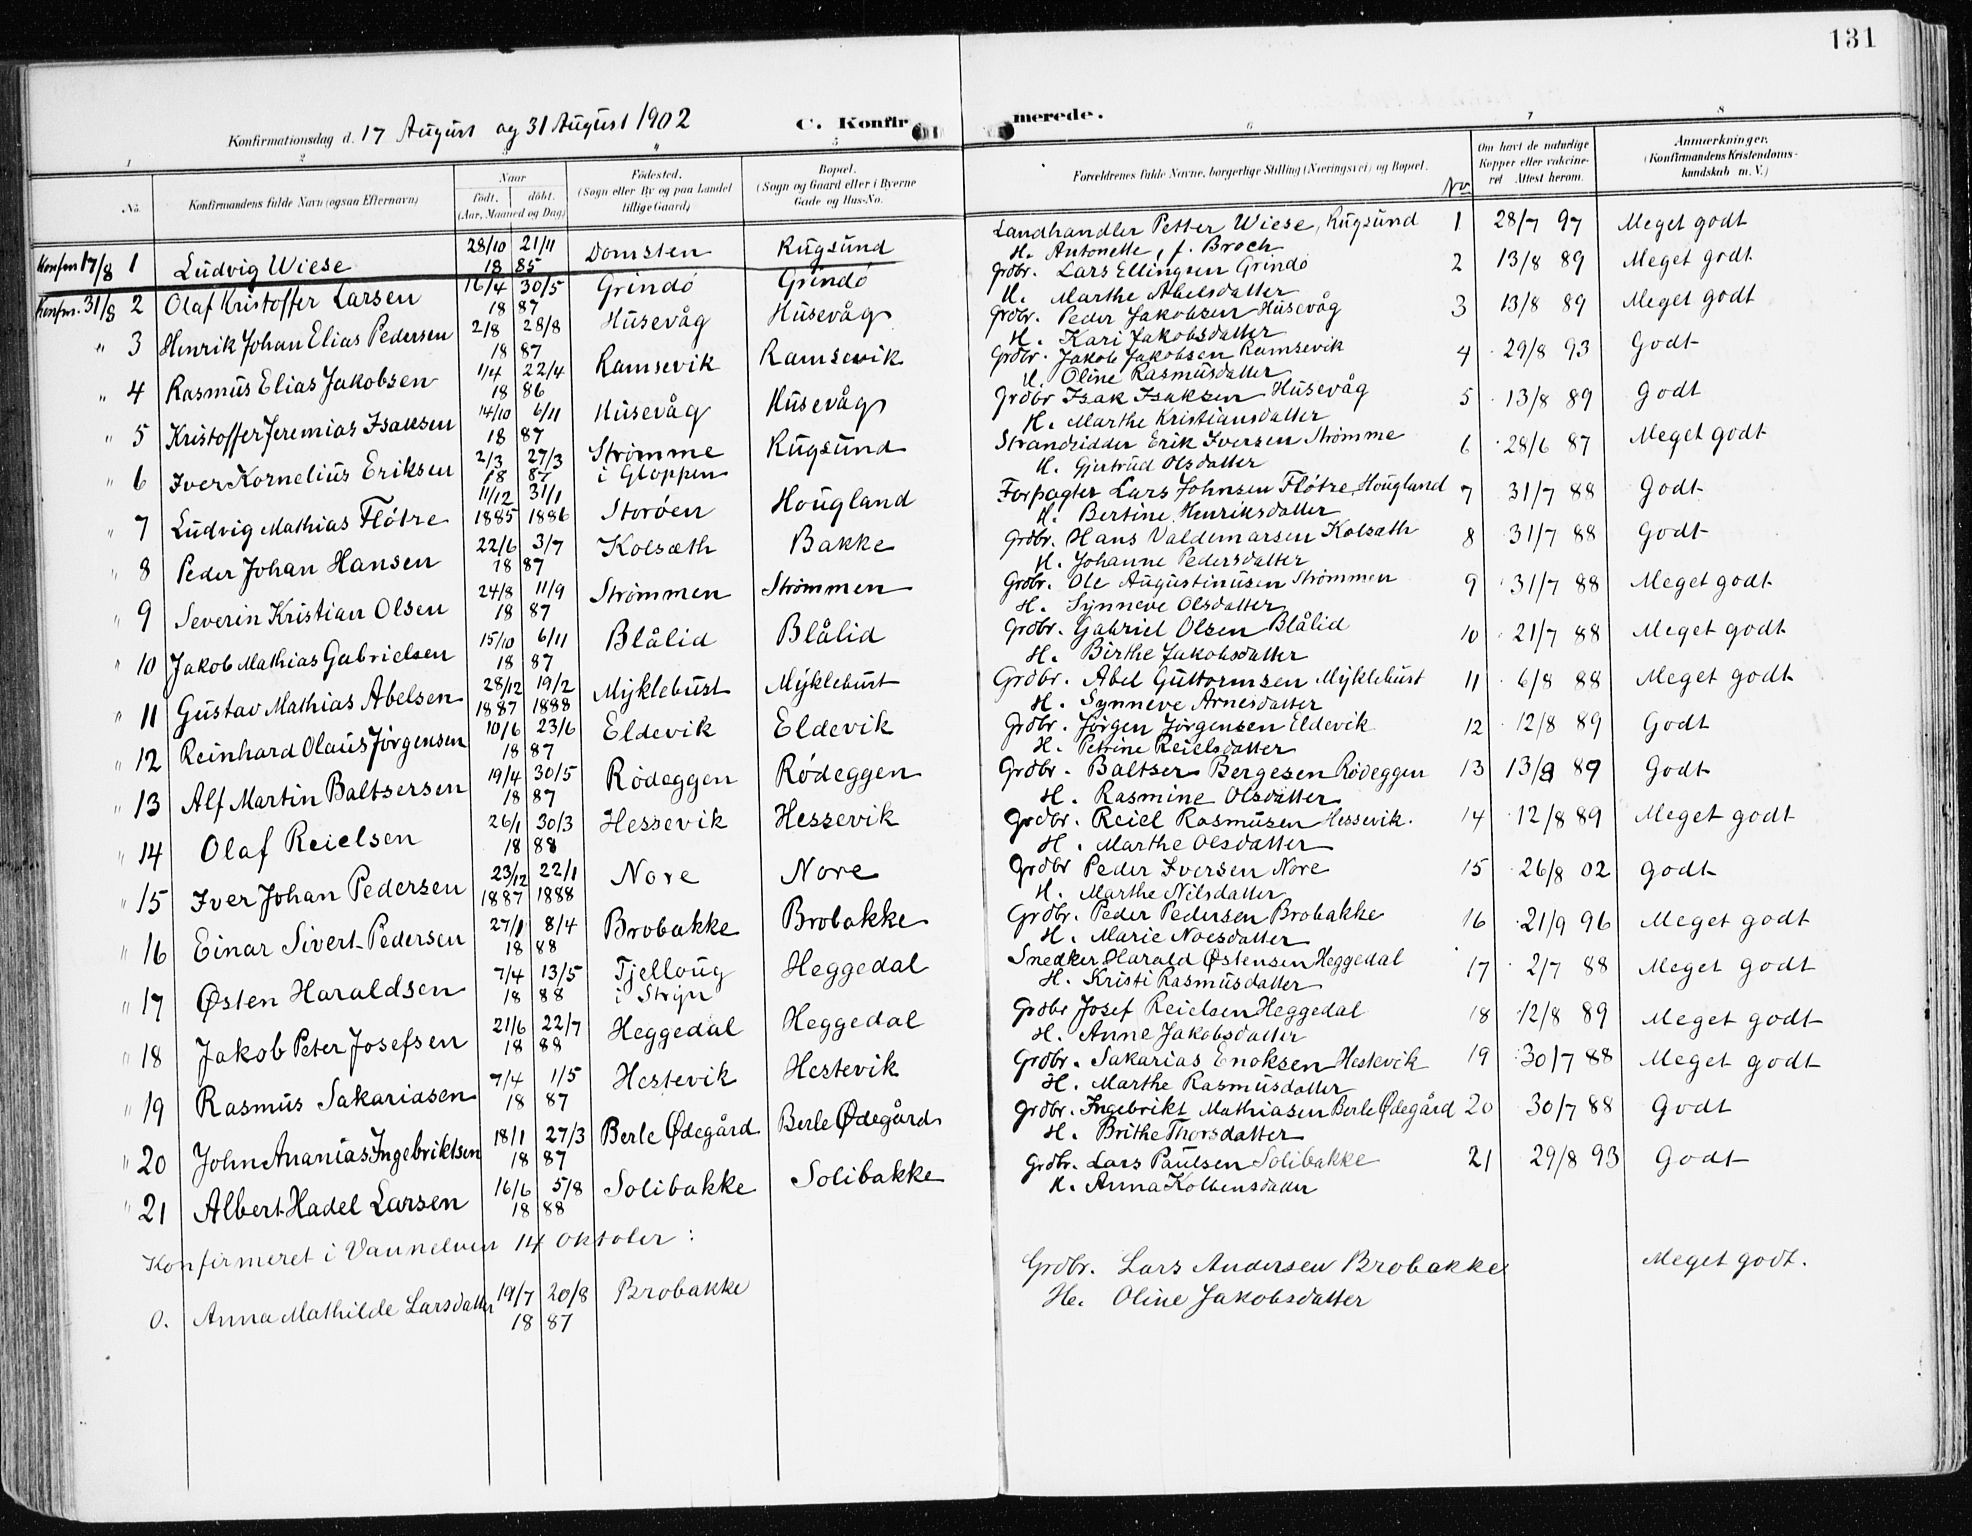 131
Konfirmationsdag d. 17 August og 31 August 1902 C. Konfir merede.
1 2 3 4 5 6 7 8
No. Konfirmandens fulde Navn (ogsaa Efternavn) Naar født. døbt. (Aar, Maaned og Dag) Fødested. (Sogn eller By og paa Landet tillige Gaard) Bopæl. (Sogn og Gaard eller i Byerne Gade og Hus-No. Forældrenes fulde Navne, borgerlige Stilling (Næringsvei) og Bopæl. No Om havt de naturlige Kopper eller vakcineret Attest herom. Anmærkninger. (Konfirmandens Kristendomskundskab m. V.)
Konfirm 17/8 1 Ludvig Wiese 28/10 21/11 1885 Domsten Rugsund Landhandler Petter Wiese, Rugsund 1 28/7 97 Meget godt
H. Antonette, f. Broch
Konfm. 31/8 2 Olaf Kristoffer Larsen 16/4 30/5 1887 Grindö Grindö Grdbr. Lars Ellingsen Grindö 2 13/8 89 Meget godt
H. Marthe Abelsdatter
" 3 Henrik Johan Elias Pedersen 2/8 28/8 1887 Husevåg Husevåg Grdbr. Peder Jakobsen Husevåg 3 13/8 89 Meget godt
H. Kari Jakobsdatter
" 4 Rasmus Elias Jakobsen 1/4 22/4 1886 Ramsevik Ramsevik Grdbr. Jakob Jakobsen Ramsevik 4 29/8 93 Godt
H. Oline Rasmusdatter
" 5 Kristoffer Jeremias Isaksen 14/10 6/11 1887 Husevåg Husevåg Grdbr Isak Isaksen Husevåg 5 13/8 89 Godt
H. Marthe Kristiansdatter
" 6 Iver Kornelius Eriksen 2/3 27/3 1887 Strømme i Gloppen Rugsund Strandsidder Erik Iversen Strømme 6 28/6 87 Meget godt
H. Gjertrud Olsdatter
" 7 Ludvig Mathias Flötre 11/12 31/1 1885 1886 Storöen Hougland Forpagter Lars Johnsen Flötre, Hougland 7 31/7 88 Godt
H. Bertine Henriksdatter
" 8 Peder Johan Hansen 22/6 3/7 1887 Kolsæth Bakke Grdbr. Hans Valdemarsen Kolsæth 8 31/7 88 Godt
H. Johanne Pedersdatter
" 9 Severin Kristian Olsen 24/8 11/9 1887 Strømmen Strømmen Grdbr. Ole Augustinusen Strømmen 9 31/7 88 Meget godt
H. Synneve Olsdatter
" 10 Jakob Mathias Gabrielsen 15/10 6/11 1887 Blålid Blålid Grdbr. Gabriel Olsen Blålid 10 21/7 88 Meget godt
H. Birthe Jakobsdatter
" 11 Gustav Mathias Abelsen 28/12 19/2 1887 1888 Myklebust Myklebust Grdbr. Abel Guttormsen Myklebust 11 6/8 88 Meget godt
H. Synneve Arnesdatter
" 12 Reinhard Olaus Jörgensen 10/6 23/6 1887 Eldevik Eldevik Grdbr. Jørgen Jørgensen Eldevik 12 12/8 89 Godt
H. Petrine Reielsdatter
" 13 Alf Martin Baltsersen 19/4 30/5 1887 Rödeggen Rödeggen Grdbr. Baltser Bergesen Rödeggen 13 13/8 89 Godt
H. Rasmine Olsdatter
" 14 Olaf Reielsen 26/1 30/3 1888 Hessevik Hessevik Grdbr. Reiel Rasmusen Hessevik. 14 12/8 89 Meget godt
H. Marthe Olsdatter
" 15 Iver Johan Pedersen 23/12 22/1 1887 1888 Nore Nore Grdbr Peder Iversen Nore 15 26/8 02 Godt
H. Marthe Nilsdatter
" 16 Einar Sivert Pedersen 27/1 8/4 1888 Brobakke Brobakke Grdbr. Peder Pedersen Brobakke 16 21/9 96 Meget godt
H. Marie Noesdatter
" 17 Østen Haraldsen 7/4 13/5 1888 Tjelloug i Stryn Heggedal Snedker Harald Østensen Heggedal 17 2/7 88 Meget godt
H. Kristi Rasmusdatter
" 18 Jakob Peter Josefsen 21/6 22/7 1888 Heggedal Heggedal Grdbr Josef Reielsen Heggedal 18 12/8 89 Meget godt
H. Anne Jakobsdatter
" 19 Rasmus Sakariasen 7/4 1/5 1887 Hestevik Hestevik Grdbr. Sakarias Enoksen Hestevik 19 30/7 88 Meget godt
H. Marthe Rasmusdatter
" 20 John Ananias Ingebriktsen 18/1 27/3 1887 Berle Ødegård Berle Ødegård Grdbr. Ingebrikt Mathiasen Berle Ødegård 20 30/7 88 Godt
H. Brithe Thorsdatter
" 21 Albert Hadel Larsen 16/6 5/8 1888 Solibakke Solibakke Grdbr. Lars Paulsen Solibakke 21 29/8 93 Godt
H. Anna Kolbensdatter
Konfirmeret i Vannelven 14 Oktober:
O. Anna Mathilde Larsdatter 19/7 20/8 1887 Brobakke Grdbr. Lars Andersen Brobakke Meget godt.
H. Oline Jakobsdatter